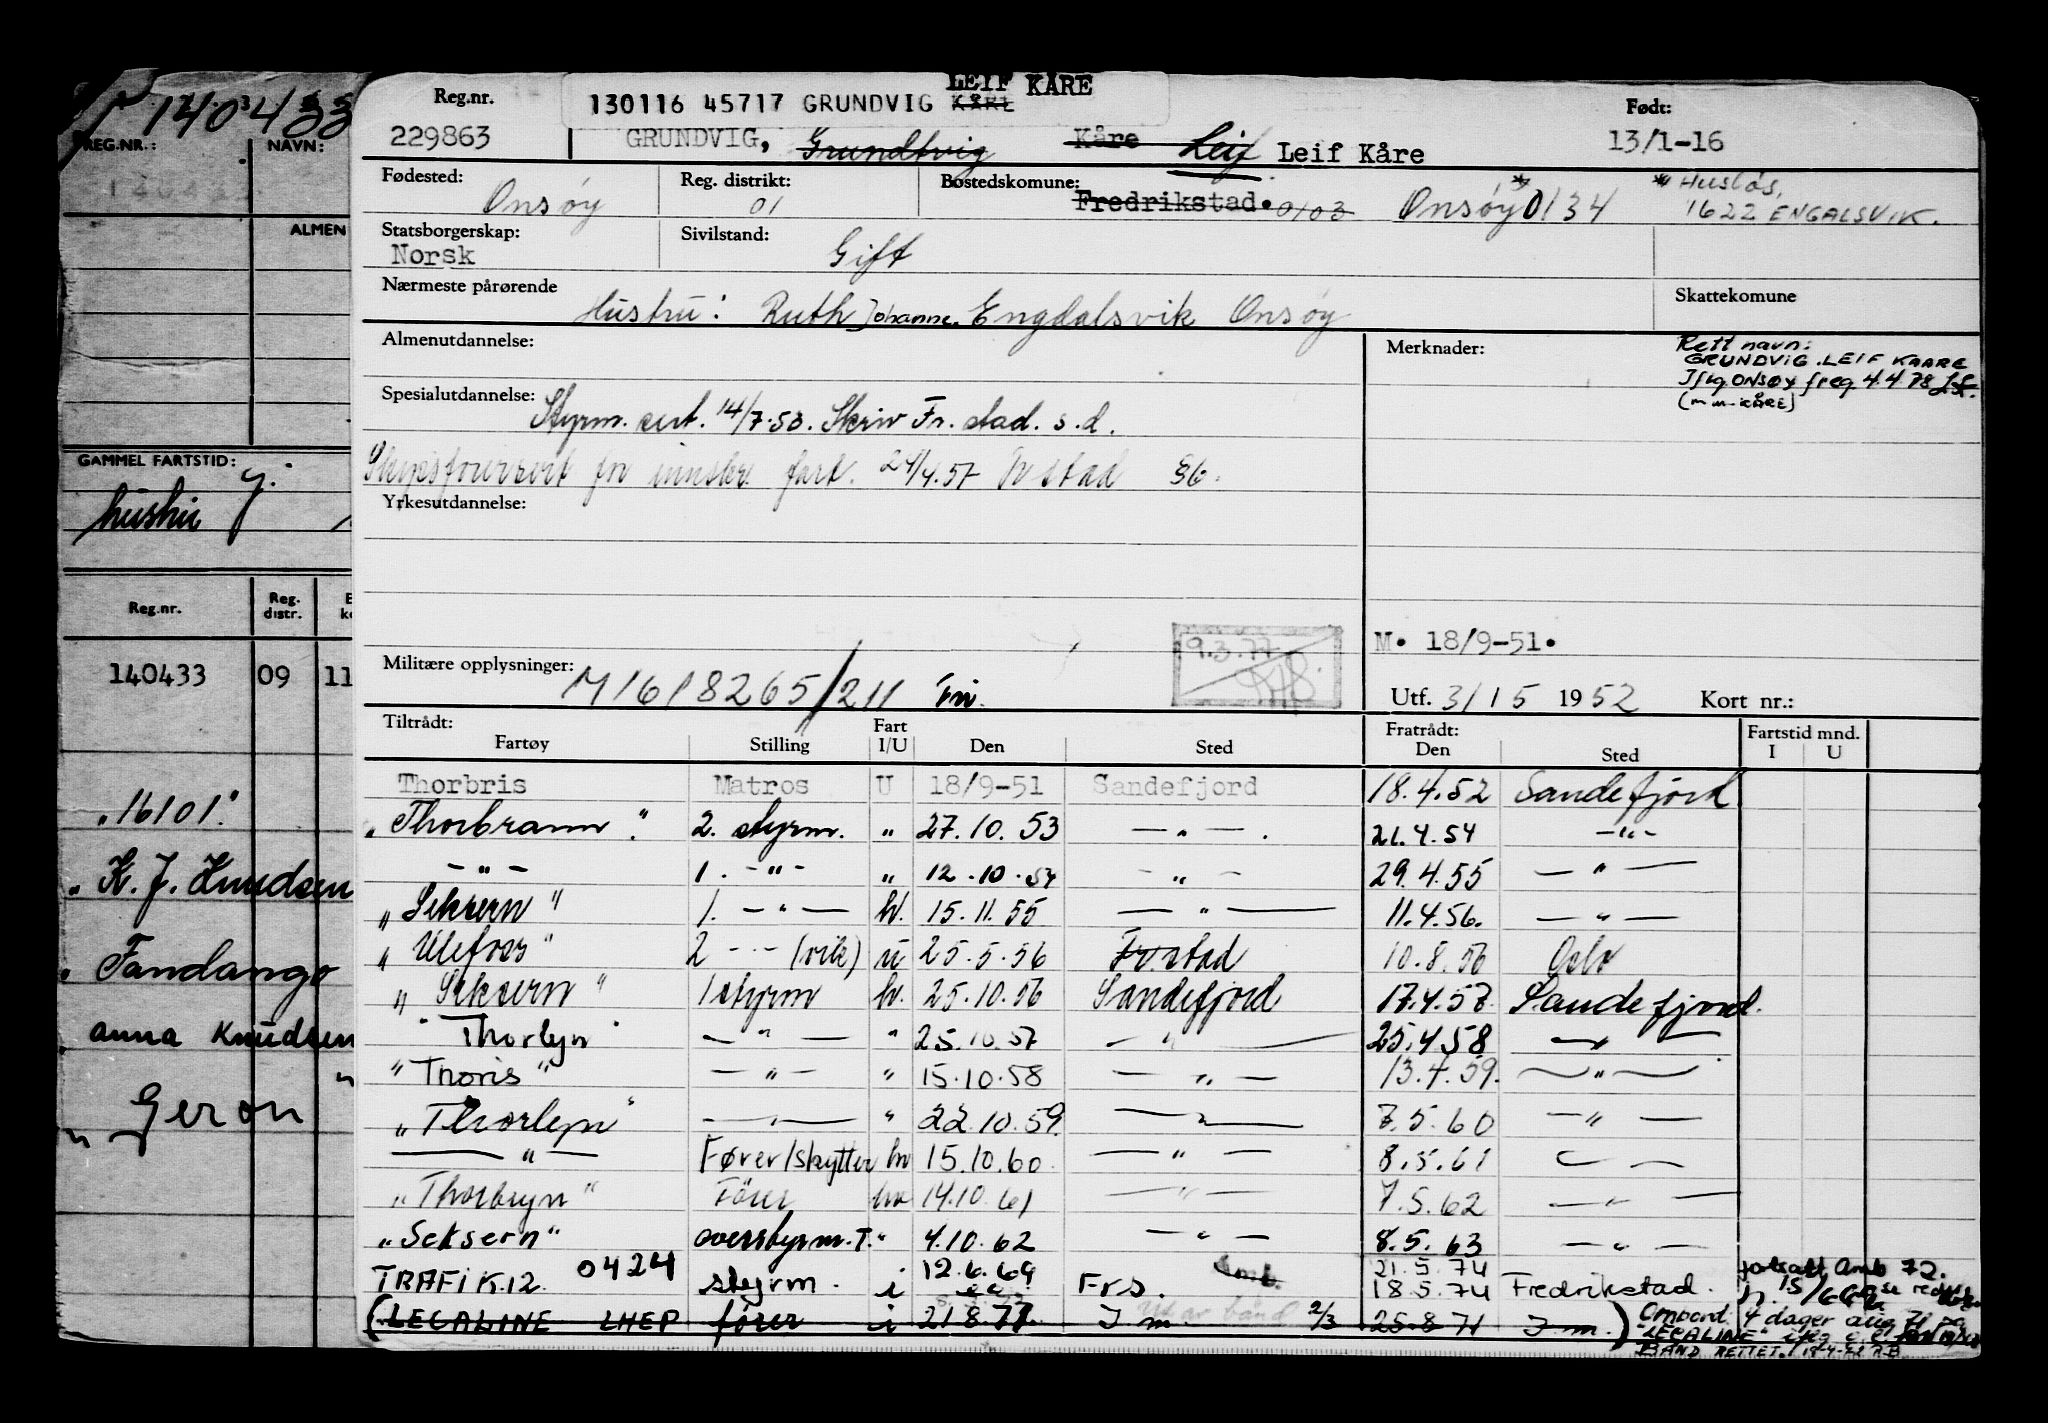 140433
REG.NR.:
NAVN:
ALMEN
GAMMEL FARTSTID:
hustru
Reg.nr.
Reg. distr.
140433 09 11
"16101"
" K. J. Knudsen
" Fandango
anna Knudsen
" Geron "
LEIF KÅRE
Reg.nr.
130116 45717 GRUNDVIG KÅRE
Født:
229863
GRUNDVIG, Grundtvig Kåre Leif Leif Kåre
13/1-16
Fødested:
Reg. distrikt:
Bostedskomune:
Onsøy
01
Fredrikstad. 0103 Onsøy 0134
* Husløs,
1622 ENGALSVIK.
Statsborgerskap:
Sivilstand:
Norsk
Gift
Nærmeste pårørende
Skattekomune
Hustru: Ruth Johanne. Engdalsvik Onsøy
Almenutdannelse:
Merknader:
Rett navn:
GRUNDVIG LEIF KAARE
Iflg ONSØY freg. 4.4.78
(m.m. KÅRE)
Spesialutdannelse:
Styrm. sert. 14/7.53. Skriv Fr. stad. s.d.
for innskr. fart. 24/4.57 Fr stad
Yrkesutdannelse:
9.3.77
M. 18/9-51.
Militære opplysninger:
M1618265/211
Utf. 31/5 1952 Kort nr.:
Tiltrådt:
Fartøy
Stilling
Fart I/U
Den
Sted
Fratrådt: Den
Sted
Fartstid mnd.
I U
Thorbris Matros U 18/9-51 Sandefjord 18.4.52 Sandefjord
"Thorbrann". 2. styrm. " 27.10.53 — " — . 21.4.54 — " —
— " — 1. — " — " 12.10.54 — " — 29.4.55 — " —
"Seksern" 1. — " — hv. 15.11.55 — " — 11.4.56. — " —
"Ulefoss" 2 — " — (vik) u 25.5.56 Fr.stad 10.8.56 Oslo
"Seksern" 1 styrm hv. 25.10.56 Sandefjord 17.4.57 Sandefjord.
"Thorlyn" — " — " 25.10.57 — " — 25.4.58 — " —
"Thoris" — " — " 15.10.58 — " — 13.4.59. — " —
"Thorlyn" — " — " 22.10.59. — " — 7.5.60 — " —
— " — Fører/skytter hv 15.10.60. — " — 8.5.61 — " —
"Thorbryn" Fører hv 14.10.61 — " — 7.5.62 — " —
"Seksern" overstyrm. T. " 4.10.62 — " — 8.5.63 — " —
TRAFIK.12. 0424 styrm. i 12.6.69 Frs. 21.5.74
18.5.74 Fredrikstad.
(LEGALINE LHEP fører i 21.8.71. I m 2/3 25.8.71 I m.)
fortsatt Amb 72.
Ombord 4 dager aug 71 på
"LEGALINE"
BAND RETTET.